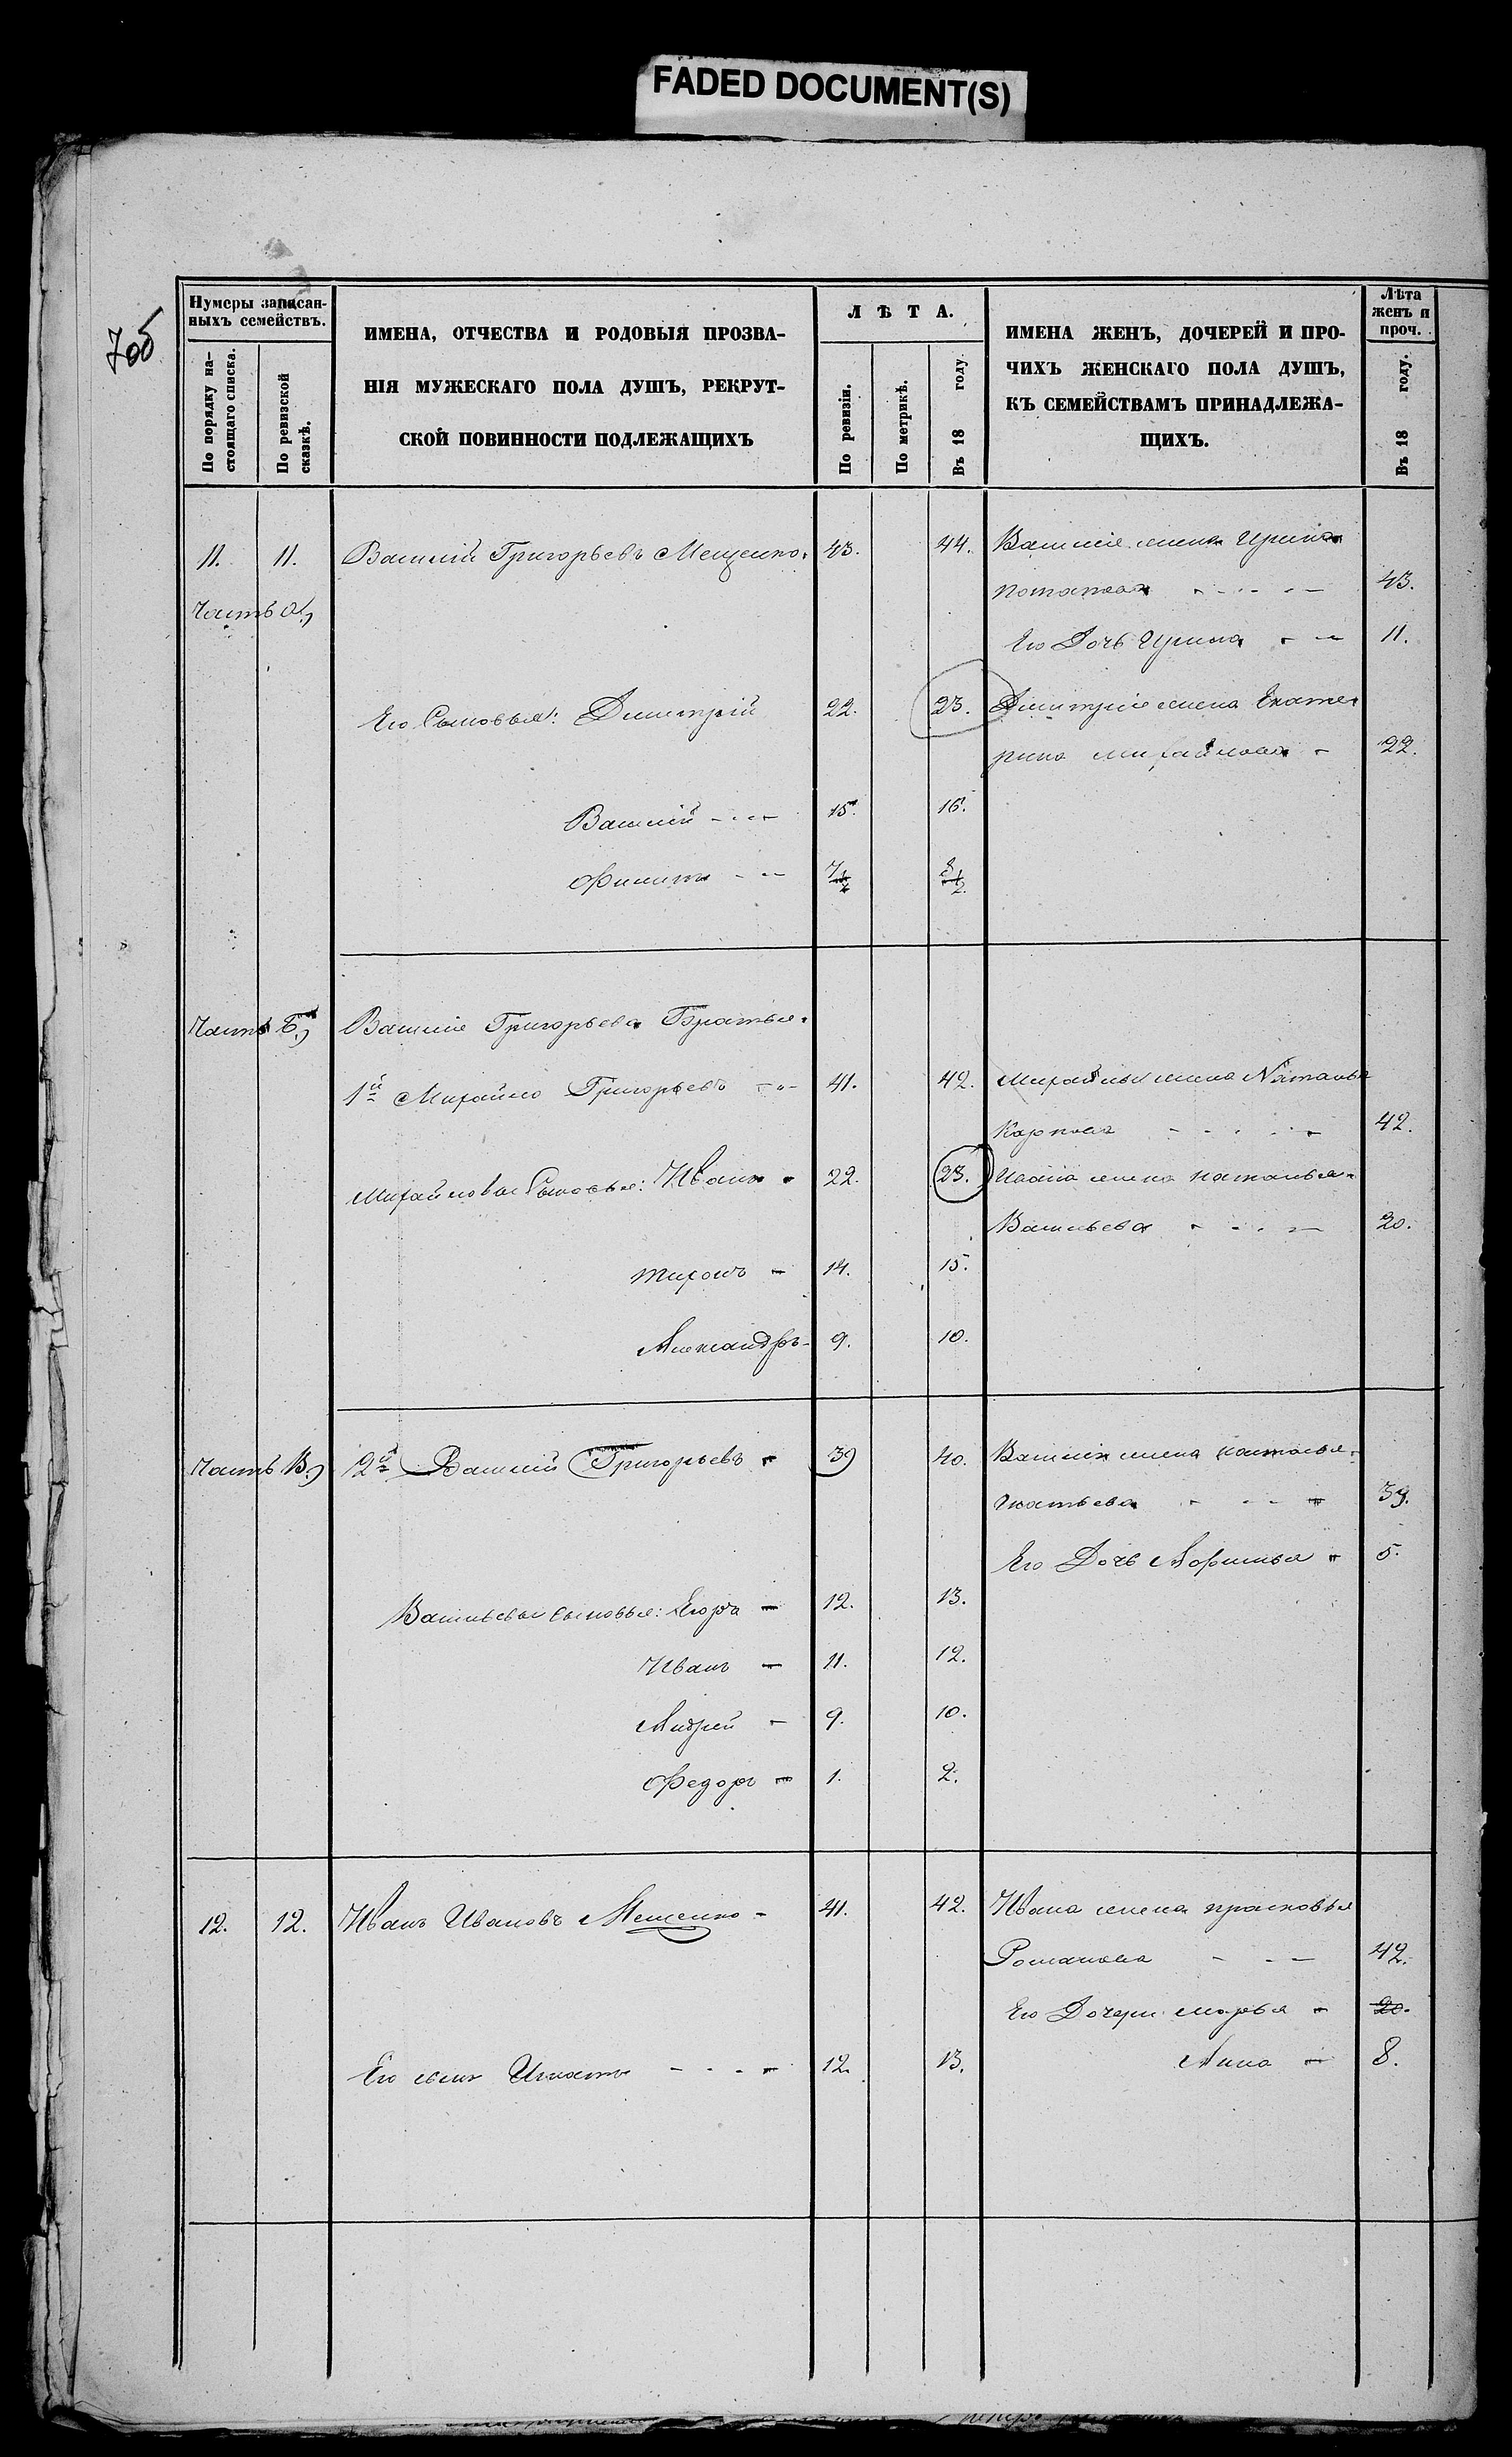 FADED DOCUMENT(S)
706
Нумеры записан-
ныхъ семействъ.
По порядку на-
стоящаго списка.
По ревизской
сказкѣ.
ИМЕНА, ОТЧЕСТВА И РОДОВЫЯ ПРОЗВА-
НІЯ МУЖЕСКАГО ПОЛА ДУШЪ, РЕКРУТ-
СКОЙ ПОВИННОСТИ ПОДЛЕЖАЩИХЪ
ЛѢТА.
По ревизіи.
По метрикѣ.
Въ 18 году.
ИМЕНА ЖЕНЪ, ДОЧЕРЕЙ И ПРО-
ЧИХЪ ЖЕНСКАГО ПОЛА ДУШЪ,
КЪ СЕМЕЙСТВАМЪ ПРИНАДЛЕЖА-
ЩИХЪ.
Лѣта
женъ и
проч.
Въ 18 году.
11. 11. Василій Григорьевъ Мещенко. 43. 44. Василія жена Ирина
Потапова 43.
Часть А.)
Его Дочь Ирина 11.
Его Сыновья: Димитрій 22. 23. Димитрія жена Екате-
рина Михайлова 22.
Василій 15. 16.
Филипъ 7 1/2 8 1/2
Часть Б.) Василія Григорьева Братья.
1й Михайло Григорьевъ 41. 42. Михайлы жена Наталья
Карпова 42.
Михайловы Сыновья: Иванъ 22. 23. Ивана жена Наталья
Васильева 20.
Тихонъ 14. 15.
Александръ 9. 10.
Часть В.) 2й Василій Григорьевъ 39 40. Василія жена Наталья
Игнатьева 39.
Его Дочь Афимья 5.
Васильевы сыновья: Егоръ 12. 13.
Иванъ 11. 12.
Андрей 9. 10.
Федоръ 1. 2.
12. 12. Иванъ Ивановъ Мещенко 41. 42. Ивана жена Прасковья
Романова 42.
Его Дочери Марья 20.
Его сынъ Игнатъ 12. 13. Анна 8.